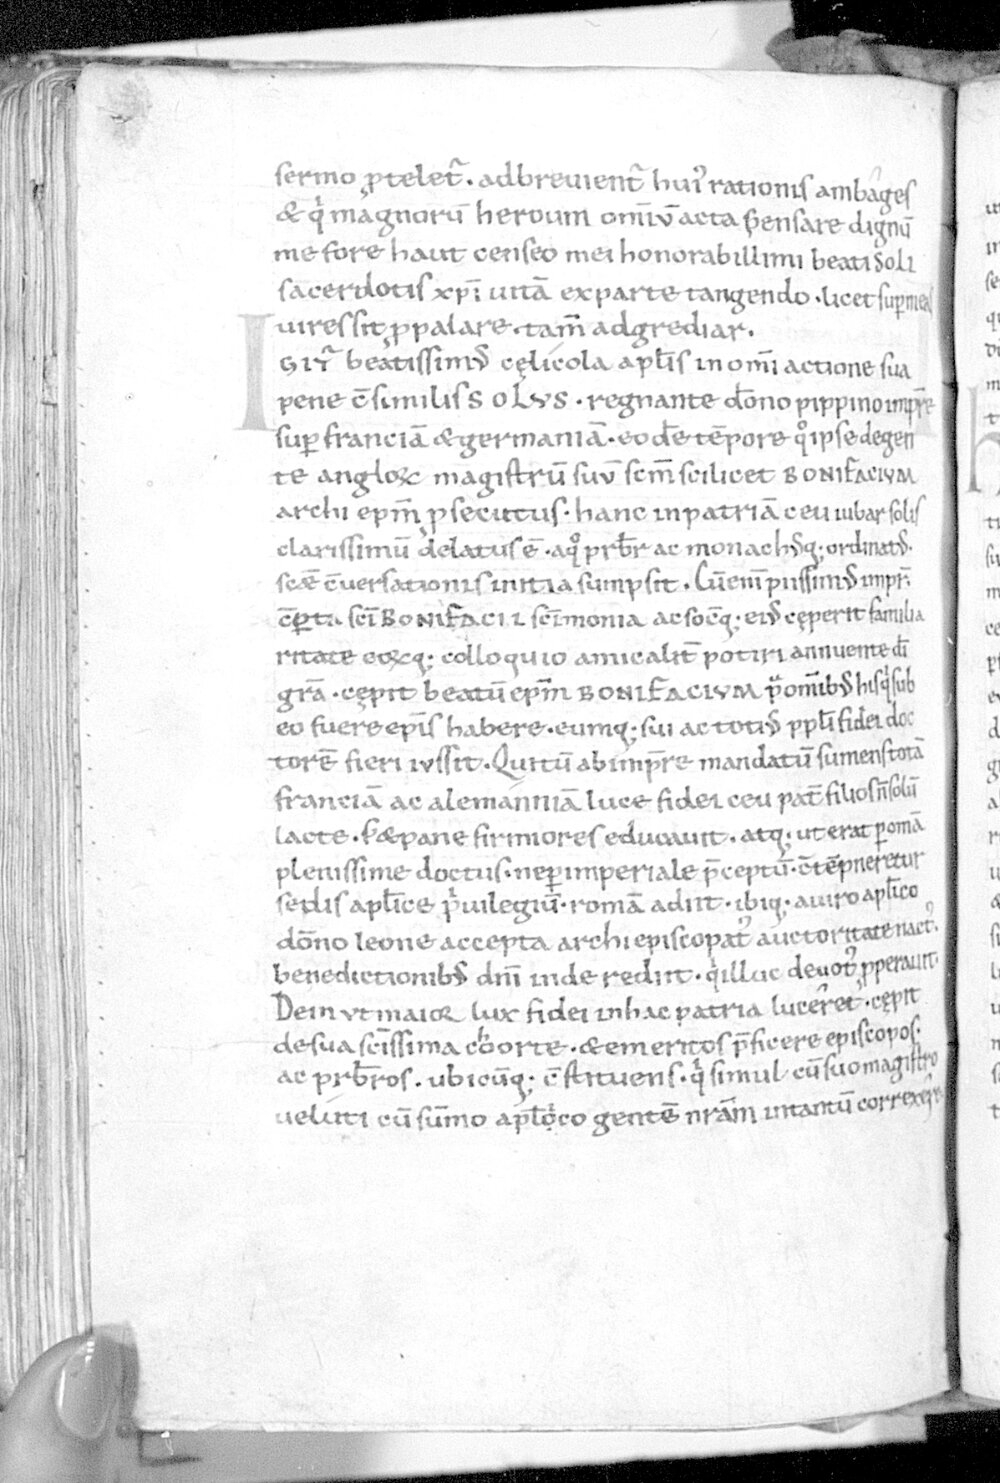 sermo ꝓtelet᷒. adbreuient᷒ hui᷒ rationis ambages
& qͥ magnorū heroum omīū acta pensare dignū
me fore haut censeo mei honorabillimi beati soli
sacerdotis xp̄i uitā ex parte tangendo. licet sup̱ meas
uires sit ꝓpalare. tam̄ adgrediar.
IGIT᷒ beatissimꝰ cęlicola apl̄is in om̄i actione sua
pene c̄similis SOLVS. regnante dōno pippino imp̄re
sup̱ franciā & germaniā. eodē tēpore qͦ ipse degen
te angloꝝ magistrū suū sc̄m scilicet BONIFACIVM
archi ep̄m ꝓsecutus. hanc in patriā ceu iubar solis
clarissimū delatus ē. aqͦ prb̄r ac monachꝰ q; ordinatꝰ.
scæ c̄uersationis initia sumpsit. Cū eni piissimꝰ imp̄r
c̄perta sc̄i BONIFACII sc̄imonia ac socq; eiꝰ cęperit familia
ritate eoꝝq; colloquio amicalit̄ potiri annuente dī
grā. cępit beatū ep̄m BONIFACIVM p̄ omībꝰ his qͥ sub
eo fuere ep̄is habere. eumq; sui ac totiꝰ ppl̄i fidei doc
torē fieri iussit. Qui tū ab imp̄re mandatū sumens totā
franciā ac alemanniā luce fidei ceu pat̄ filios n̄ solū
lacte. s; & pane firmiores educauit. atq; ut erat p̱ omā
plenissime doctus. ne p̱ imperiale p̄ceptū. c̄tēpneretur
sedis apl̄ice pͥuilegiū. romā adiit. ibiq; a uiro apl̄ico
dōno leone accepta archiepiscopat᷒ auctoritate nact᷒.
benedictionibꝰ dn̄i inde rediit. qͥ illuc deuot᷒ ꝓperauit.
Dein vt maior lux fidei in hac patria luceret. cępit
de sua sc̄issima cohorte. & emeritos p̄ficere episcopos.
ac prb̄ros. ubicūq; c̄stituens. qͥ simul cū suo magistro
ueluti cū sūmo apl̄oꝝco gentē nrām intantū correxer̄